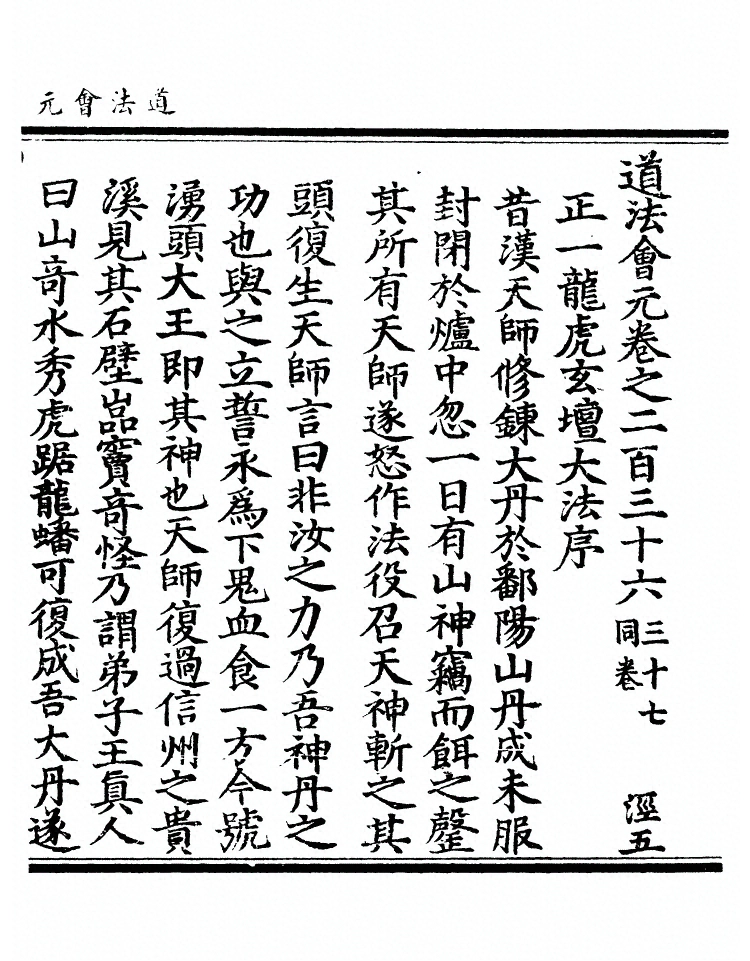 道法會元
道法會元卷之二百三十六 三十七同卷 涇五
正一龍虎玄壇大法序
昔漢天師修鍊大丹於鄱陽山丹成未服
封閉於爐中忽一日有山神竊而餌之罄
其所有天師遂怒作法役召天神斬之其
頭復生天師言曰非汝之力乃吾神丹之
功也與之立誓永爲下鬼血食一方今號
湧頭大王即其神也天師復過信州之貴
溪見其石壁嵓竇奇怪乃謂弟子王真人
曰山奇水秀虎踞龍蟠可復成吾大丹遂